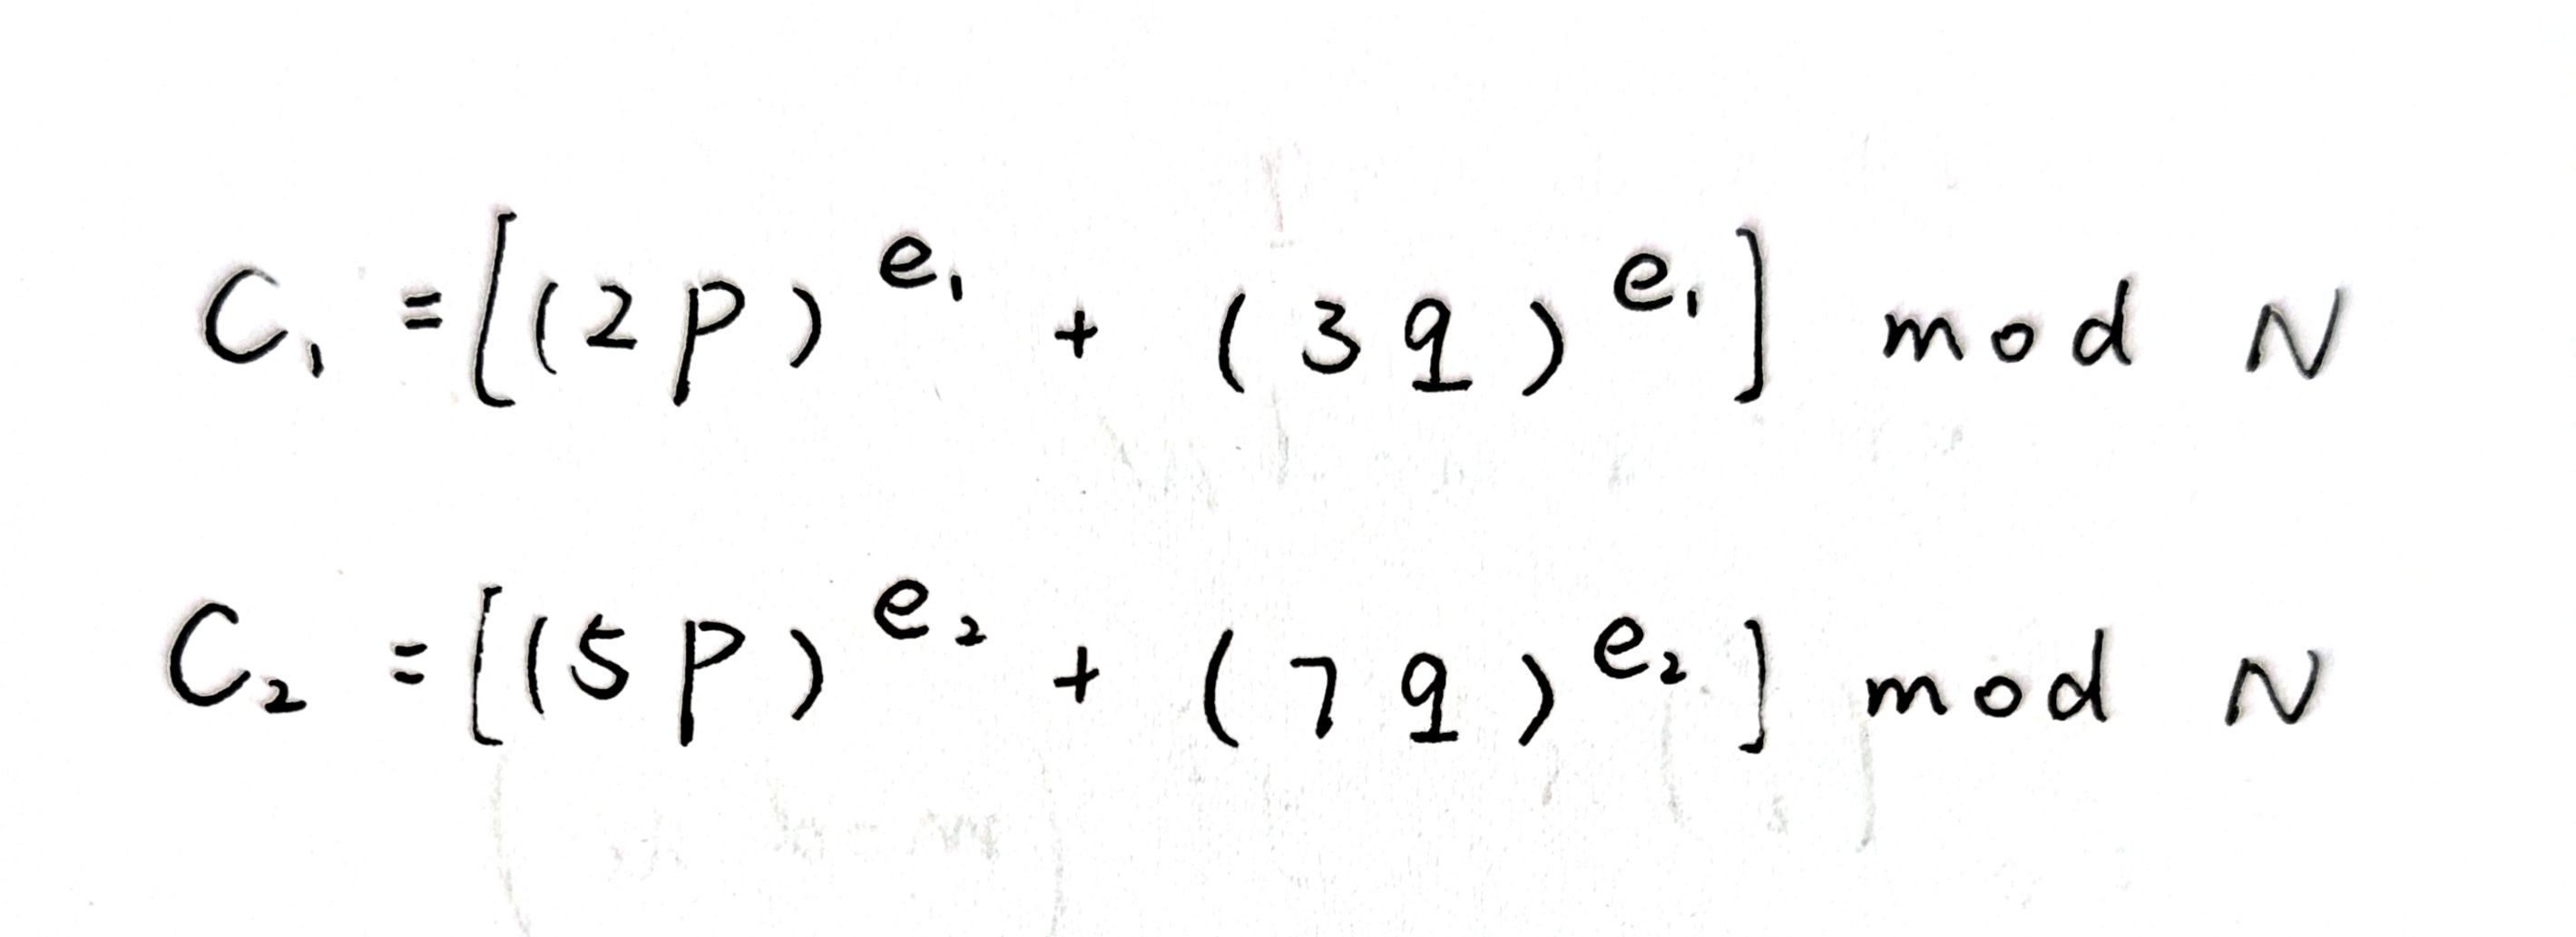 C₁ = [(2p)^e₁ + (3q)^e₁] mod N
C₂ = [(5p)^e₂ + (7q)^e₂] mod N